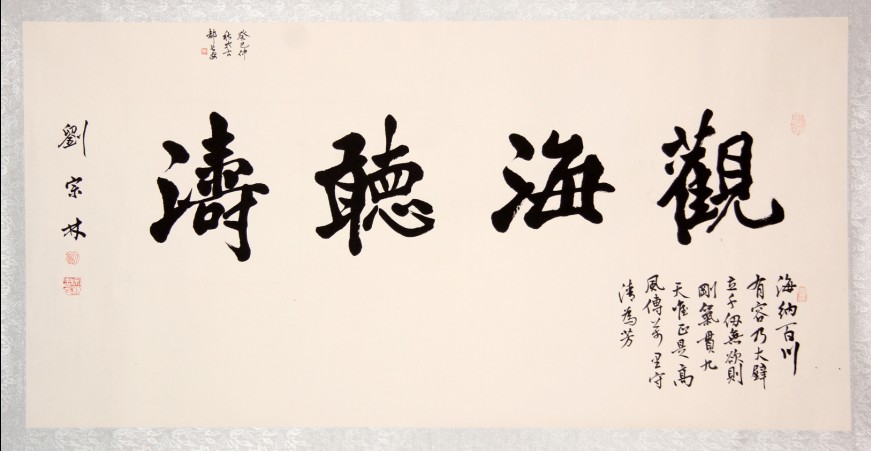 觀海聽濤
海納百川
有容乃大壁
立千仞無欲則
剛氣貫九
天唯正是高
風傳萬里守
清為芳
劉宗林
癸巳仲